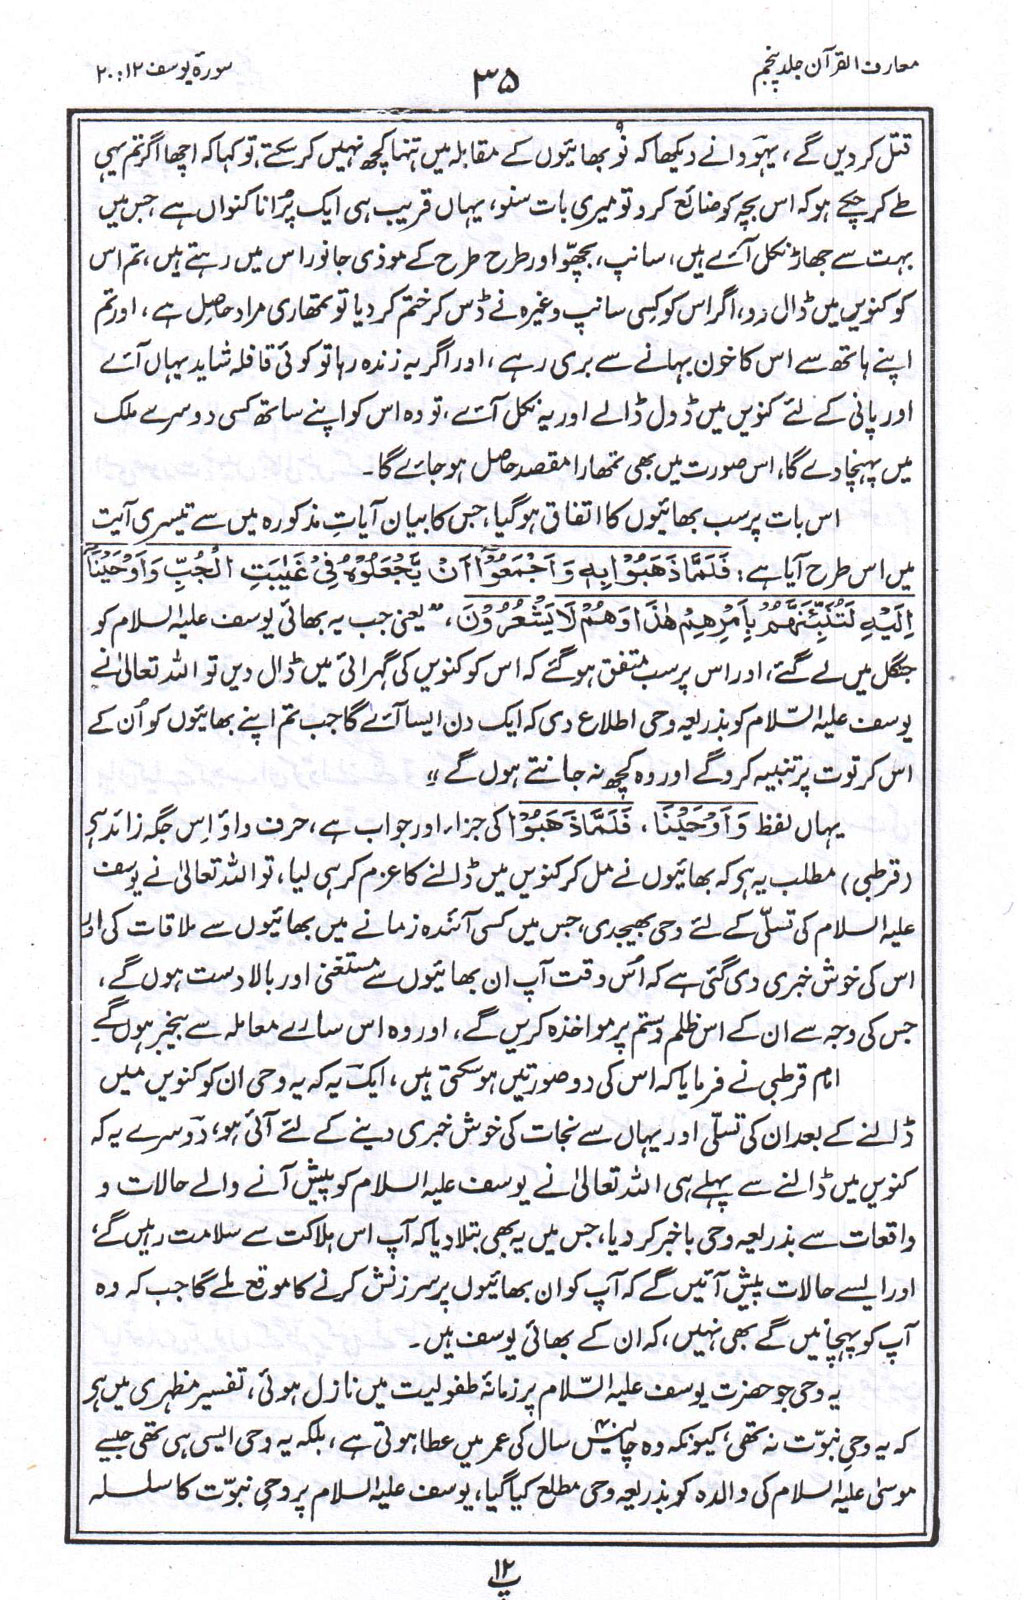 معارف القرآن جلد پنجم
۳۵
سورۃ یوسف ۱۲ : ۲۰
قتل کر دیں گے، یہودا نے دیکھا کہ نو۹ بھائیوں کے مقابلہ میں تنہا کچھ نہیں کر سکتے، تو کہا کہ اچھا اگر تم یہی
طے کر چکے ہو کہ اس بچہ کو ضائع کرو تو میری بات سنو، یہاں قریب ہی ایک پُرانا کنواں ہے جس میں
بہت سے جھاڑ نکل آئے ہیں، سانپ، بچھو اور طرح طرح کے موذی جانور اس میں رہتے ہیں، تم اس
کو کنویں میں ڈال دو، اگر اس کو کسی سانپ وغیرہ نے ڈس کر ختم کر دیا تو تمھاری مراد حاصل ہے، اور تم
اپنے ہاتھ سے اس کا خون بہانے سے بری رہے، اور اگر یہ زندہ رہا تو کوئی قافلہ شاید یہاں آئے
اور پانی کے لئے کنویں میں ڈول ڈالے اور یہ نکل آئے، تو وہ اس کو اپنے ساتھ کسی دوسرے ملک
میں پہنچا دے گا، اس صورت میں بھی تمھارا مقصد حاصل ہو جائے گا۔
اس بات پر سب بھائیوں کا اتفاق ہو گیا، جس کا بیان آیاتِ مذکورہ میں سے تیسری آیت
میں اس طرح آیا ہے: فَلَمَّا ذَهَبُوْا بِهٖ وَاَجْمَعُوْٓا اَنْ يَّجْعَلُوْهُ فِيْ غَيٰبَتِ الْجُبِّ وَاَوْحَيْنَآ
اِلَيْهِ لَتُنَبِّئَنَّهُمْ بِاَمْرِهِمْ هٰذَا وَهُمْ لَا يَشْعُرُوْنَ، ”یعنی جب یہ بھائی یوسف علیہ السلام کو
جنگل میں لے گئے، اور اس پر سب متفق ہو گئے کہ اس کو کنویں کی گہرائی میں ڈال دیں تو اللہ تعالیٰ نے
یوسف علیہ السّلام کو بذریعہ وحی اطلاع دی کہ ایک دن ایسا آئے گا جب تم اپنے بھائیوں کو اُن کے
اس کرتوت پر تنبیہ کرو گے اور وہ کچھ نہ جانتے ہوں گے“
یہاں لفظ وَاَوْحَيْنَا، فَلَمَّا ذَهَبُوْا کی جزاء اور جواب ہے، حرف واؤ اِس جگہ زائد ہی
(قرطبی) مطلب یہ ہی کہ بھائیوں نے مل کر کنویں میں ڈالنے کا عزم کر ہی لیا، تو اللہ تعالیٰ نے یوسف
علیہ السلام کی تسلّی کے لئے وحی بھیجدی، جس میں کسی آئندہ زمانے میں بھائیوں سے ملاقات کی اور
اس کی خوش خبری دی گئی ہے کہ اُس وقت آپ ان بھائیوں سے مستغنی اور بالا دست ہوں گے،
جس کی وجہ سے ان کے اس ظلم و ستم پر مواخذہ کریں گے، اور وہ اس سارے معاملہ سے بیخبر ہوں گے
امام قرطبی نے فرمایا کہ اس کی دو صورتیں ہو سکتی ہیں، ایک یہ کہ یہ وحی ان کو کنویں میں
ڈالنے کے بعد ان کی تسلّی اور یہاں سے نجات کی خوش خبری دینے کے لئے آئی ہو، دوسرے یہ کہ
کنویں میں ڈالنے سے پہلے ہی اللہ تعالیٰ نے یوسف علیہ السلام کو پیش آنے والے حالات و
واقعات سے بذریعہ وحی باخبر کر دیا، جس میں یہ بھی بتلا دیا کہ آپ اس ہلاکت سے سلامت رہیں گے،
اور ایسے حالات پیش آئیں گے کہ آپ کو ان بھائیوں پر سرزنش کرنے کا موقع ملے گا جب کہ وہ
آپ کو پہچانیں گے بھی نہیں، کہ ان کے بھائی یوسف ہیں۔
یہ وحی جو حضرت یوسف علیہ السّلام پر زمانۂ طفولیت میں نازل ہوئی، تفسیر مظہری میں ہی
کہ یہ وحیِ نبوّت نہ تھی، کیونکہ وہ چالیس۴۰ سال کی عمر میں عطا ہوتی ہے، بلکہ یہ وحی ایسی ہی تھی جیسے
موسیٰ علیہ السلام کی والدہ کو بذریعہ وحی مطلع کیا گیا، یوسف علیہ السلام پر وحیِ نبوّت کا سلسلہ
۱۲
پ